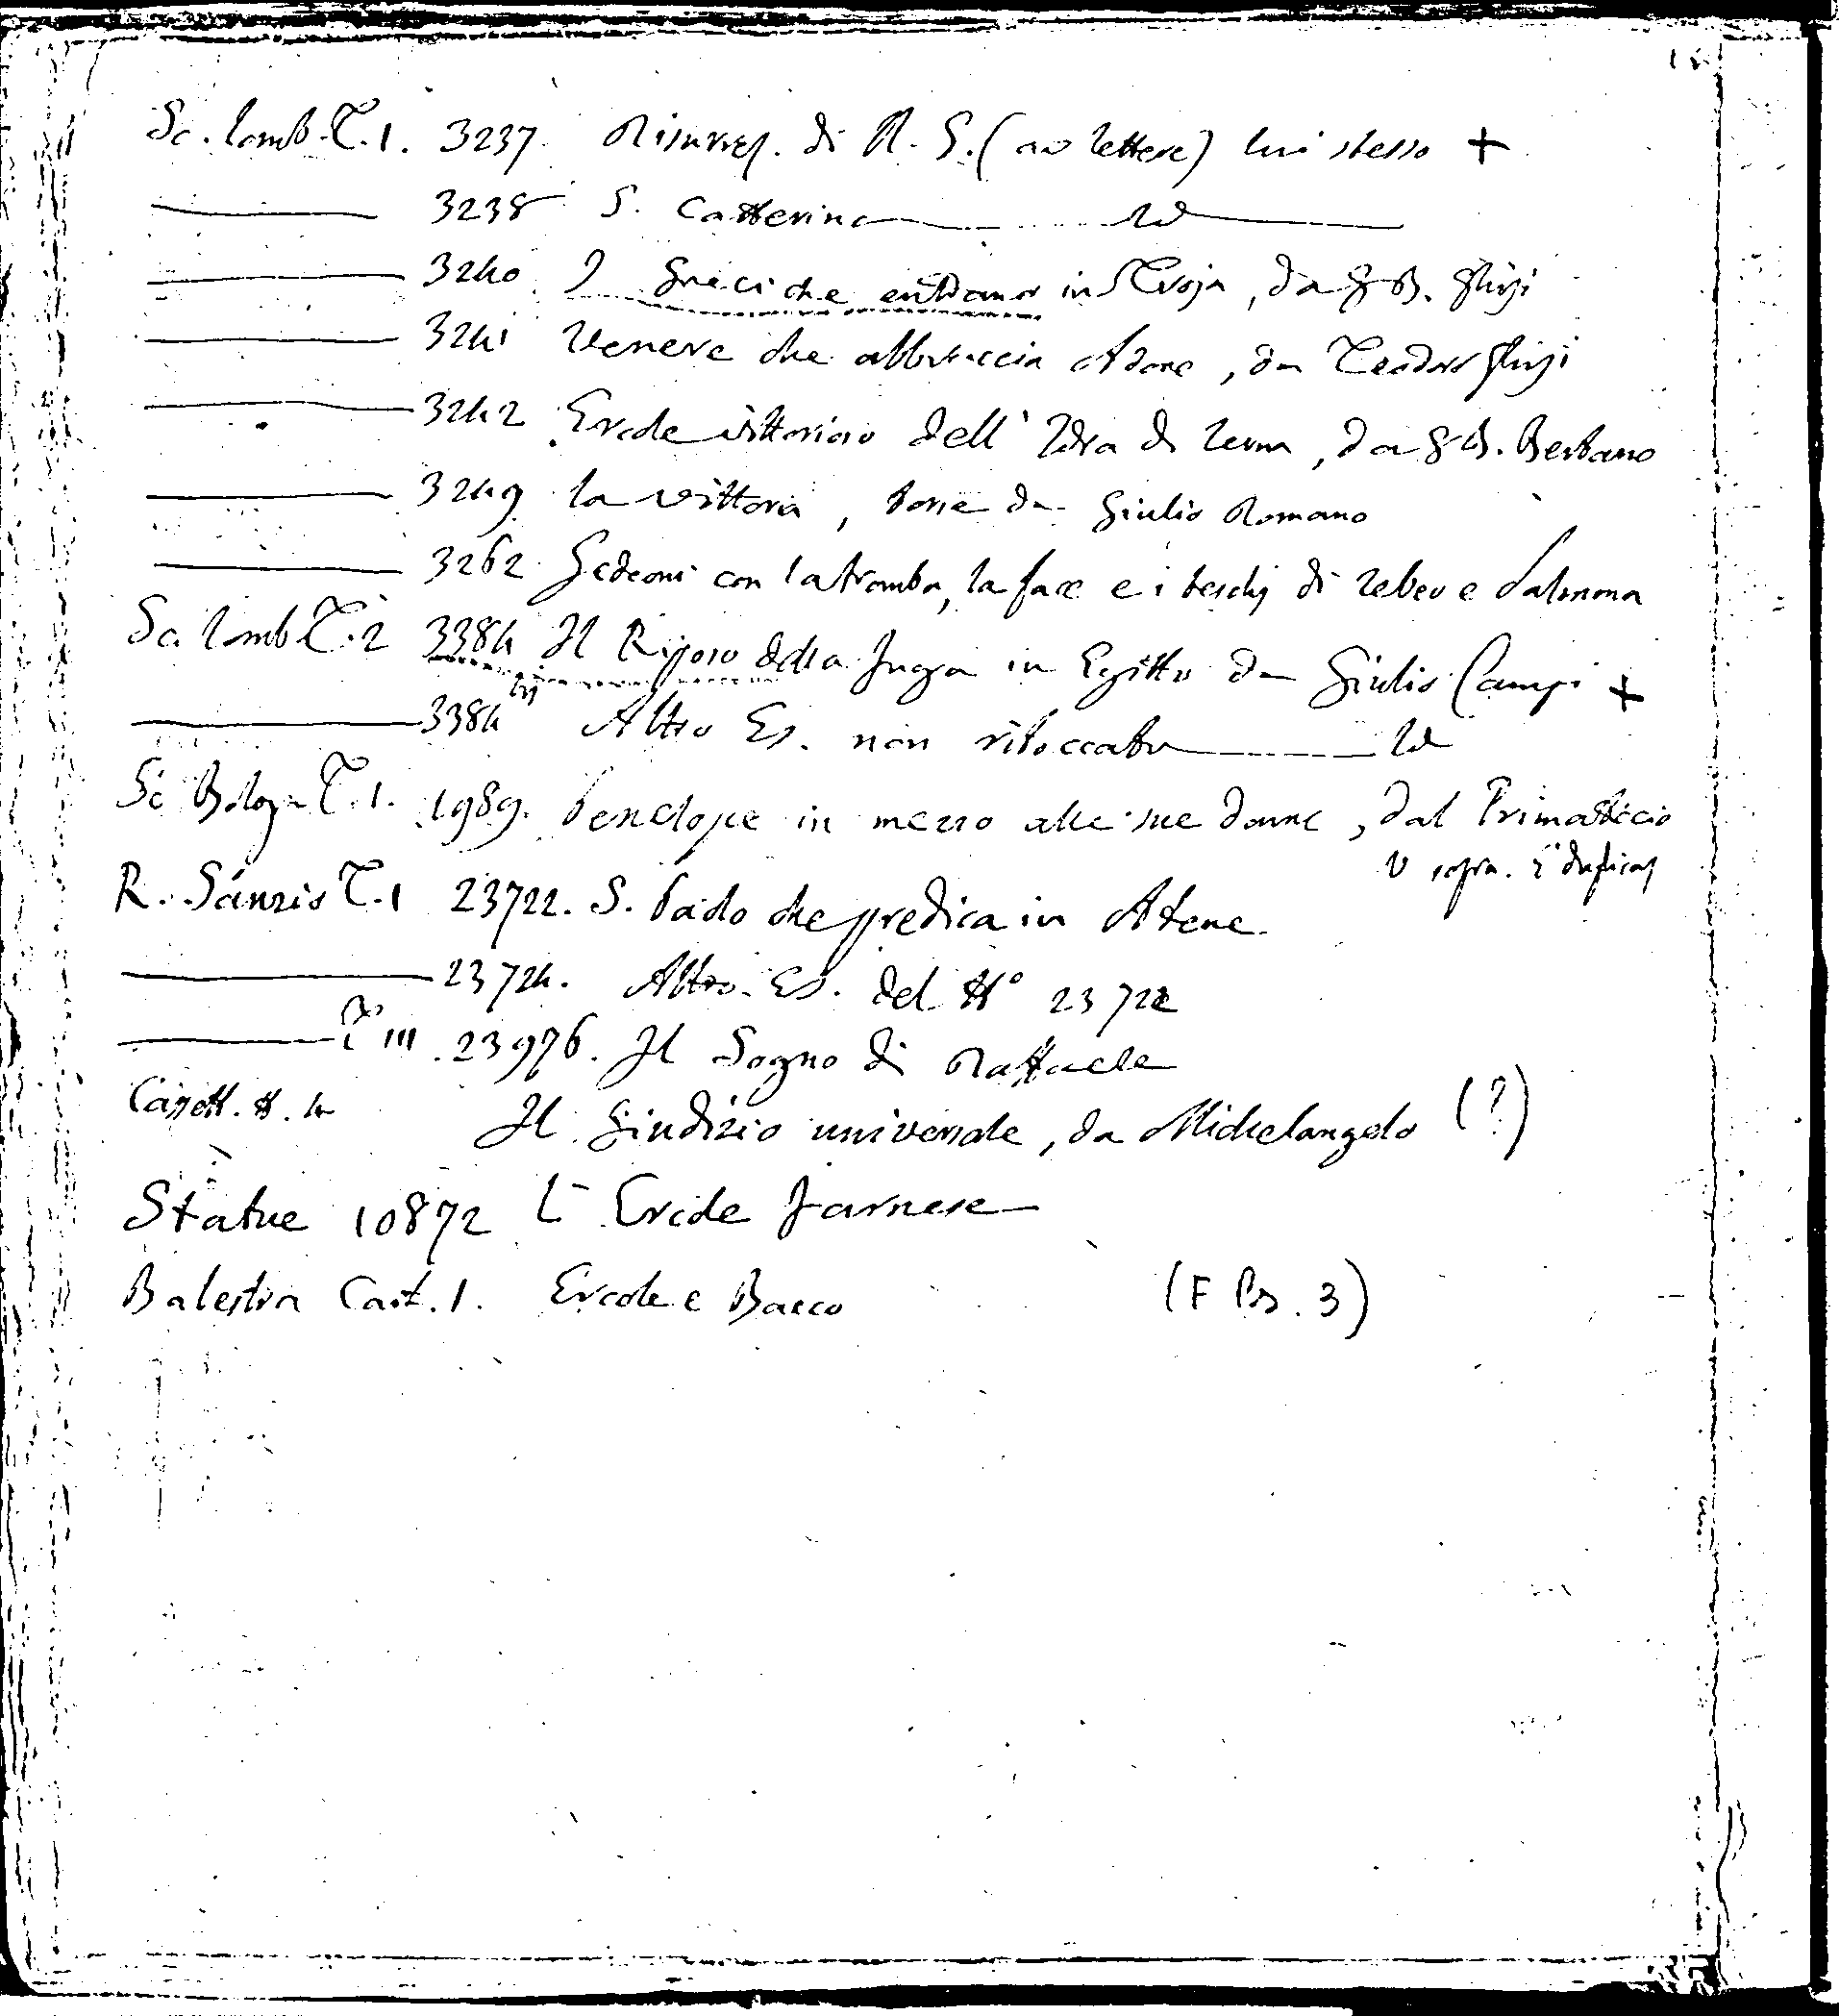 Sc. Lomb. T. 1. 3237. Risurrez. di N. S. (av lettere) lui stesso +
3238 S. Catterina Id
3240. I Greci che entrano in Troja, da G. B. Ghigi
3241 Venere che abbraccia Adone, da Teodoro Ghigi
3242 Ercole vittorioso dell' Idra di Lerna, da G. B. Bertano
3249. La Vittoria, forse da Giulio Romano
3262. Gedeoni con la tromba, la face e i teschj di Zebeo e Salmona
Sc. Lomb T. 2 3384 Il Riposo della Fuga in Egitto da Giulio Campi +
3384 bis Altro Es. non ritoccato Id
Sc Bologn T. 1. 1989. Penelope in mezzo alle sue donne, dal Primaticcio
V sopra.
R. Sanzio T. 1 23722. S. Paolo che predica in Atene.
23724. Altro Es. del N° 23722
T III. 23976. Il Sogno di Raffaele
Casett. N. 4 Il Giudizio universale, da Michelangelo (?)
Statue 10872 L' Ercole Farnese
Balestra Cart. 1. Ercole e Bacco (F Bs. 3)